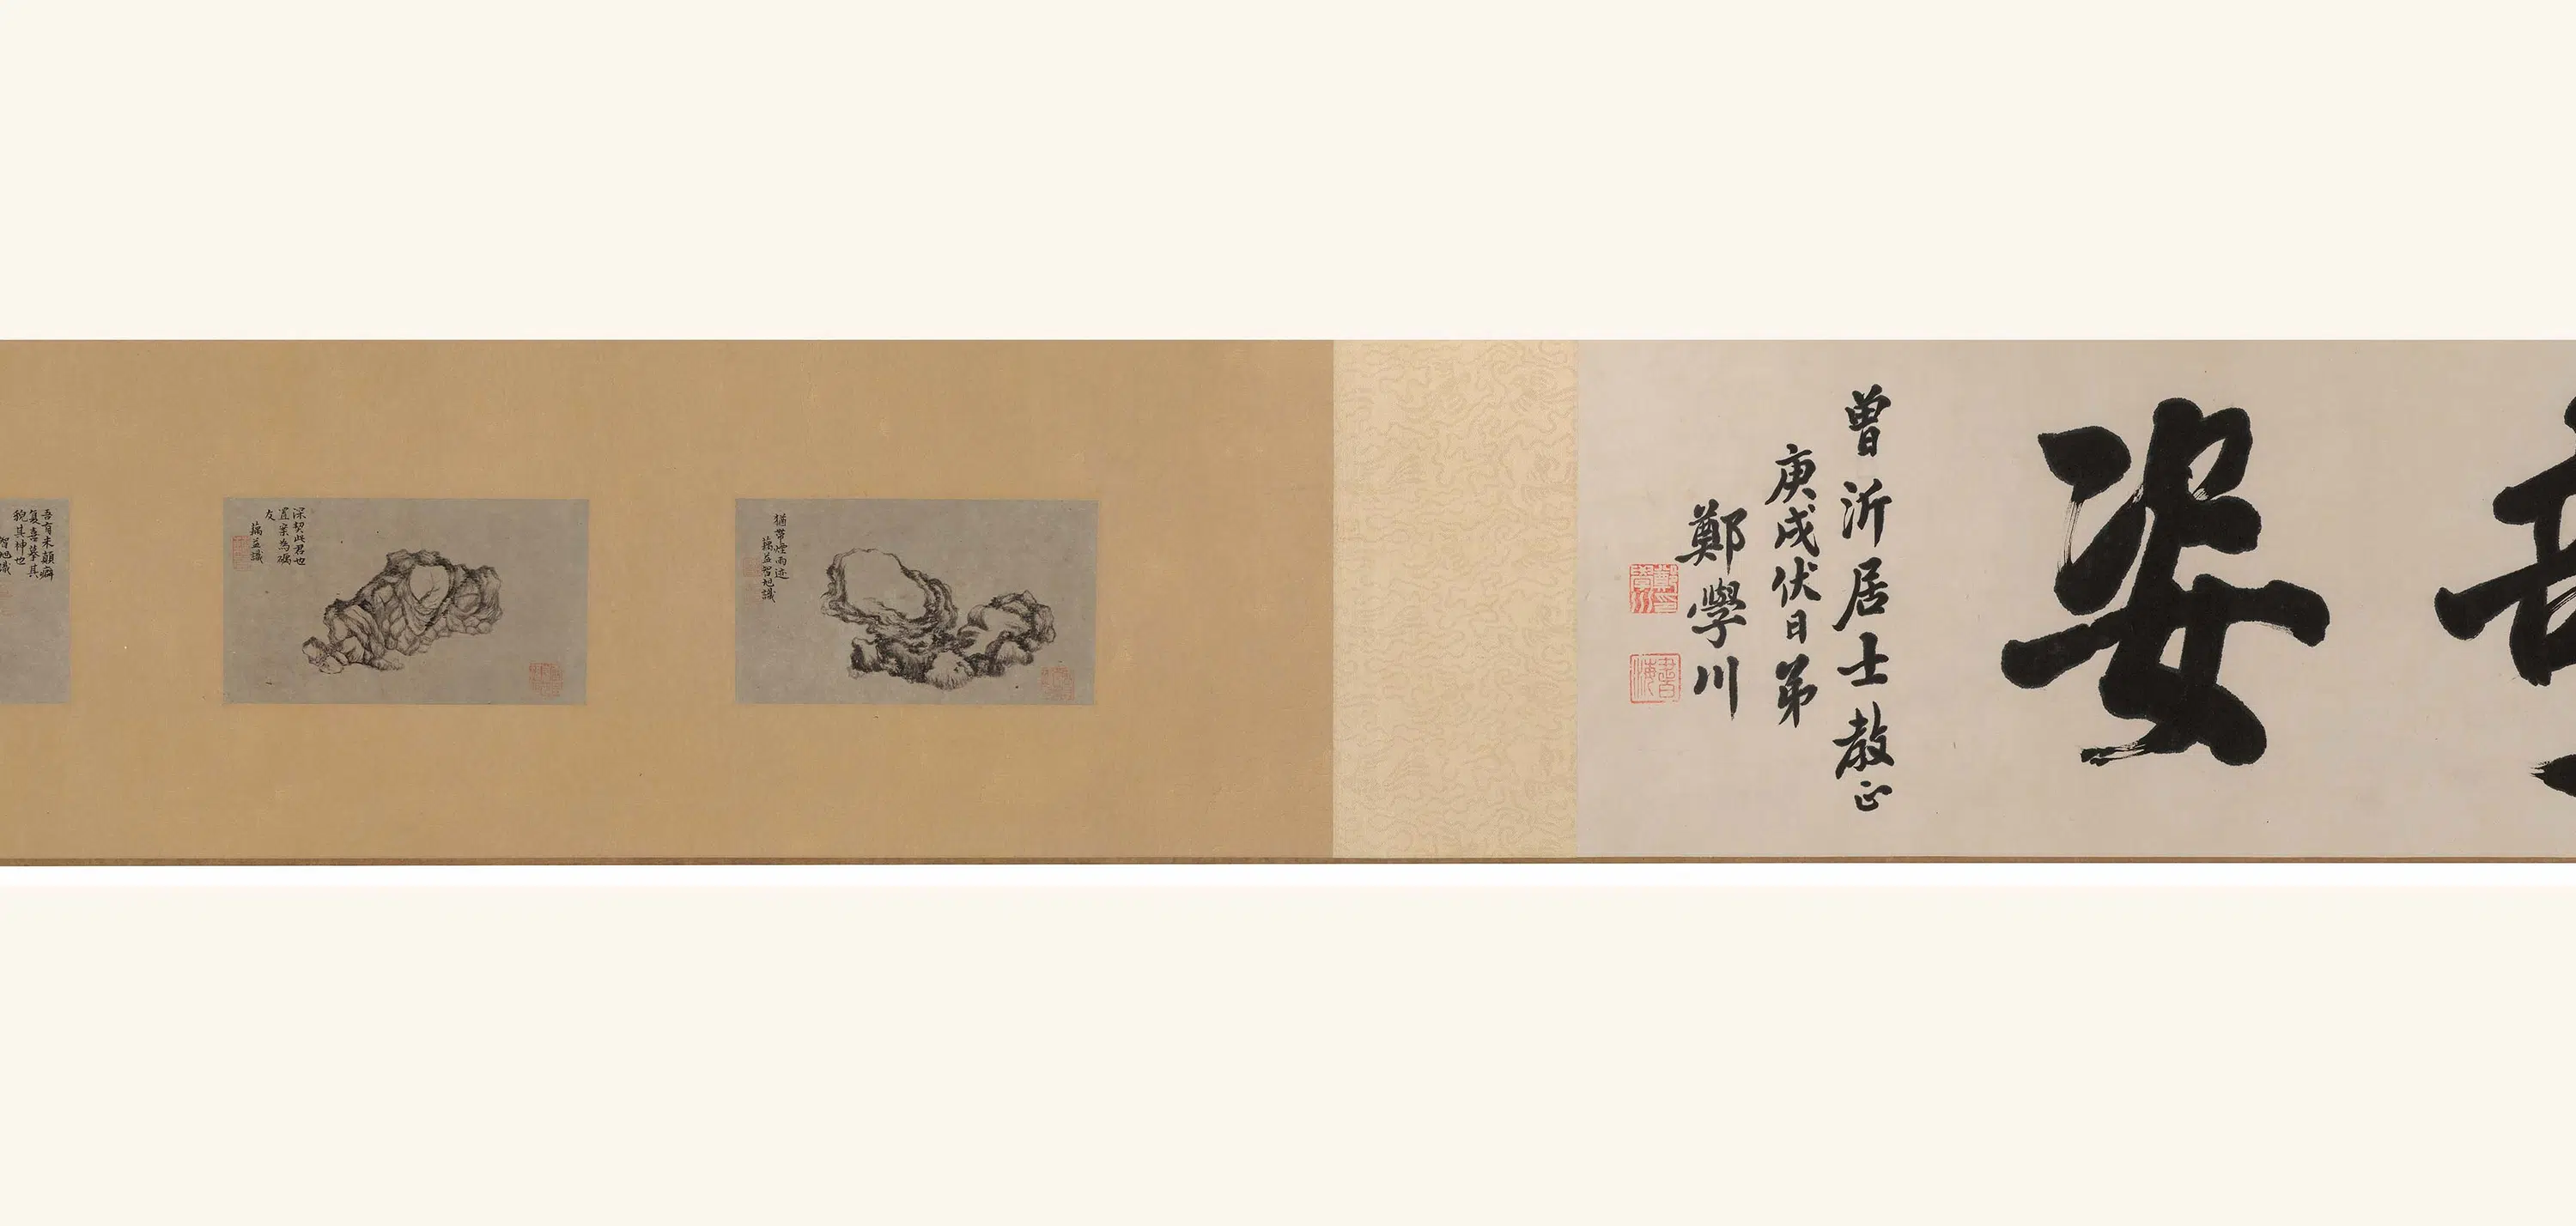 姿
曾沂居士教正
庚戌伏日弟
鄭學川
猶帶煙雨迹
蕅益智旭識
深契此君也
置案為礪
友
蕅益識
吾有米顛癖
复喜摹其
貌其神也
智旭識